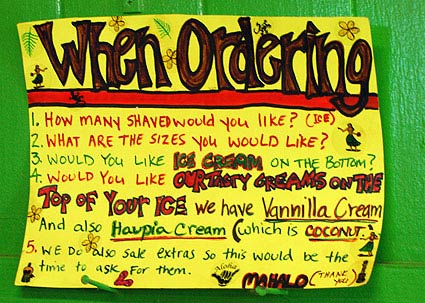 When Ordering
1. HOW MANY SHAVED WOULD YOU LIKE? (ICE)
2. WHAT ARE THE SIZES YOU WOULD LIKE?
3. WOULD YOU LIKE ICE CREAM ON THE BOTTOM?
4. WOULD YOU LIKE OUR TASTY CREAMS ON THE
TOP OF YOUR ICE WE HAVE VANNILLA CREAM
AND ALSO HAUPIA CREAM (WHICH IS COCONUT.
5. WE DO ALSO SALE EXTRAS SO THIS WOULD BE THE
TIME TO ASK FOR THEM.
Aloha
MAHALO (THANK YOU)